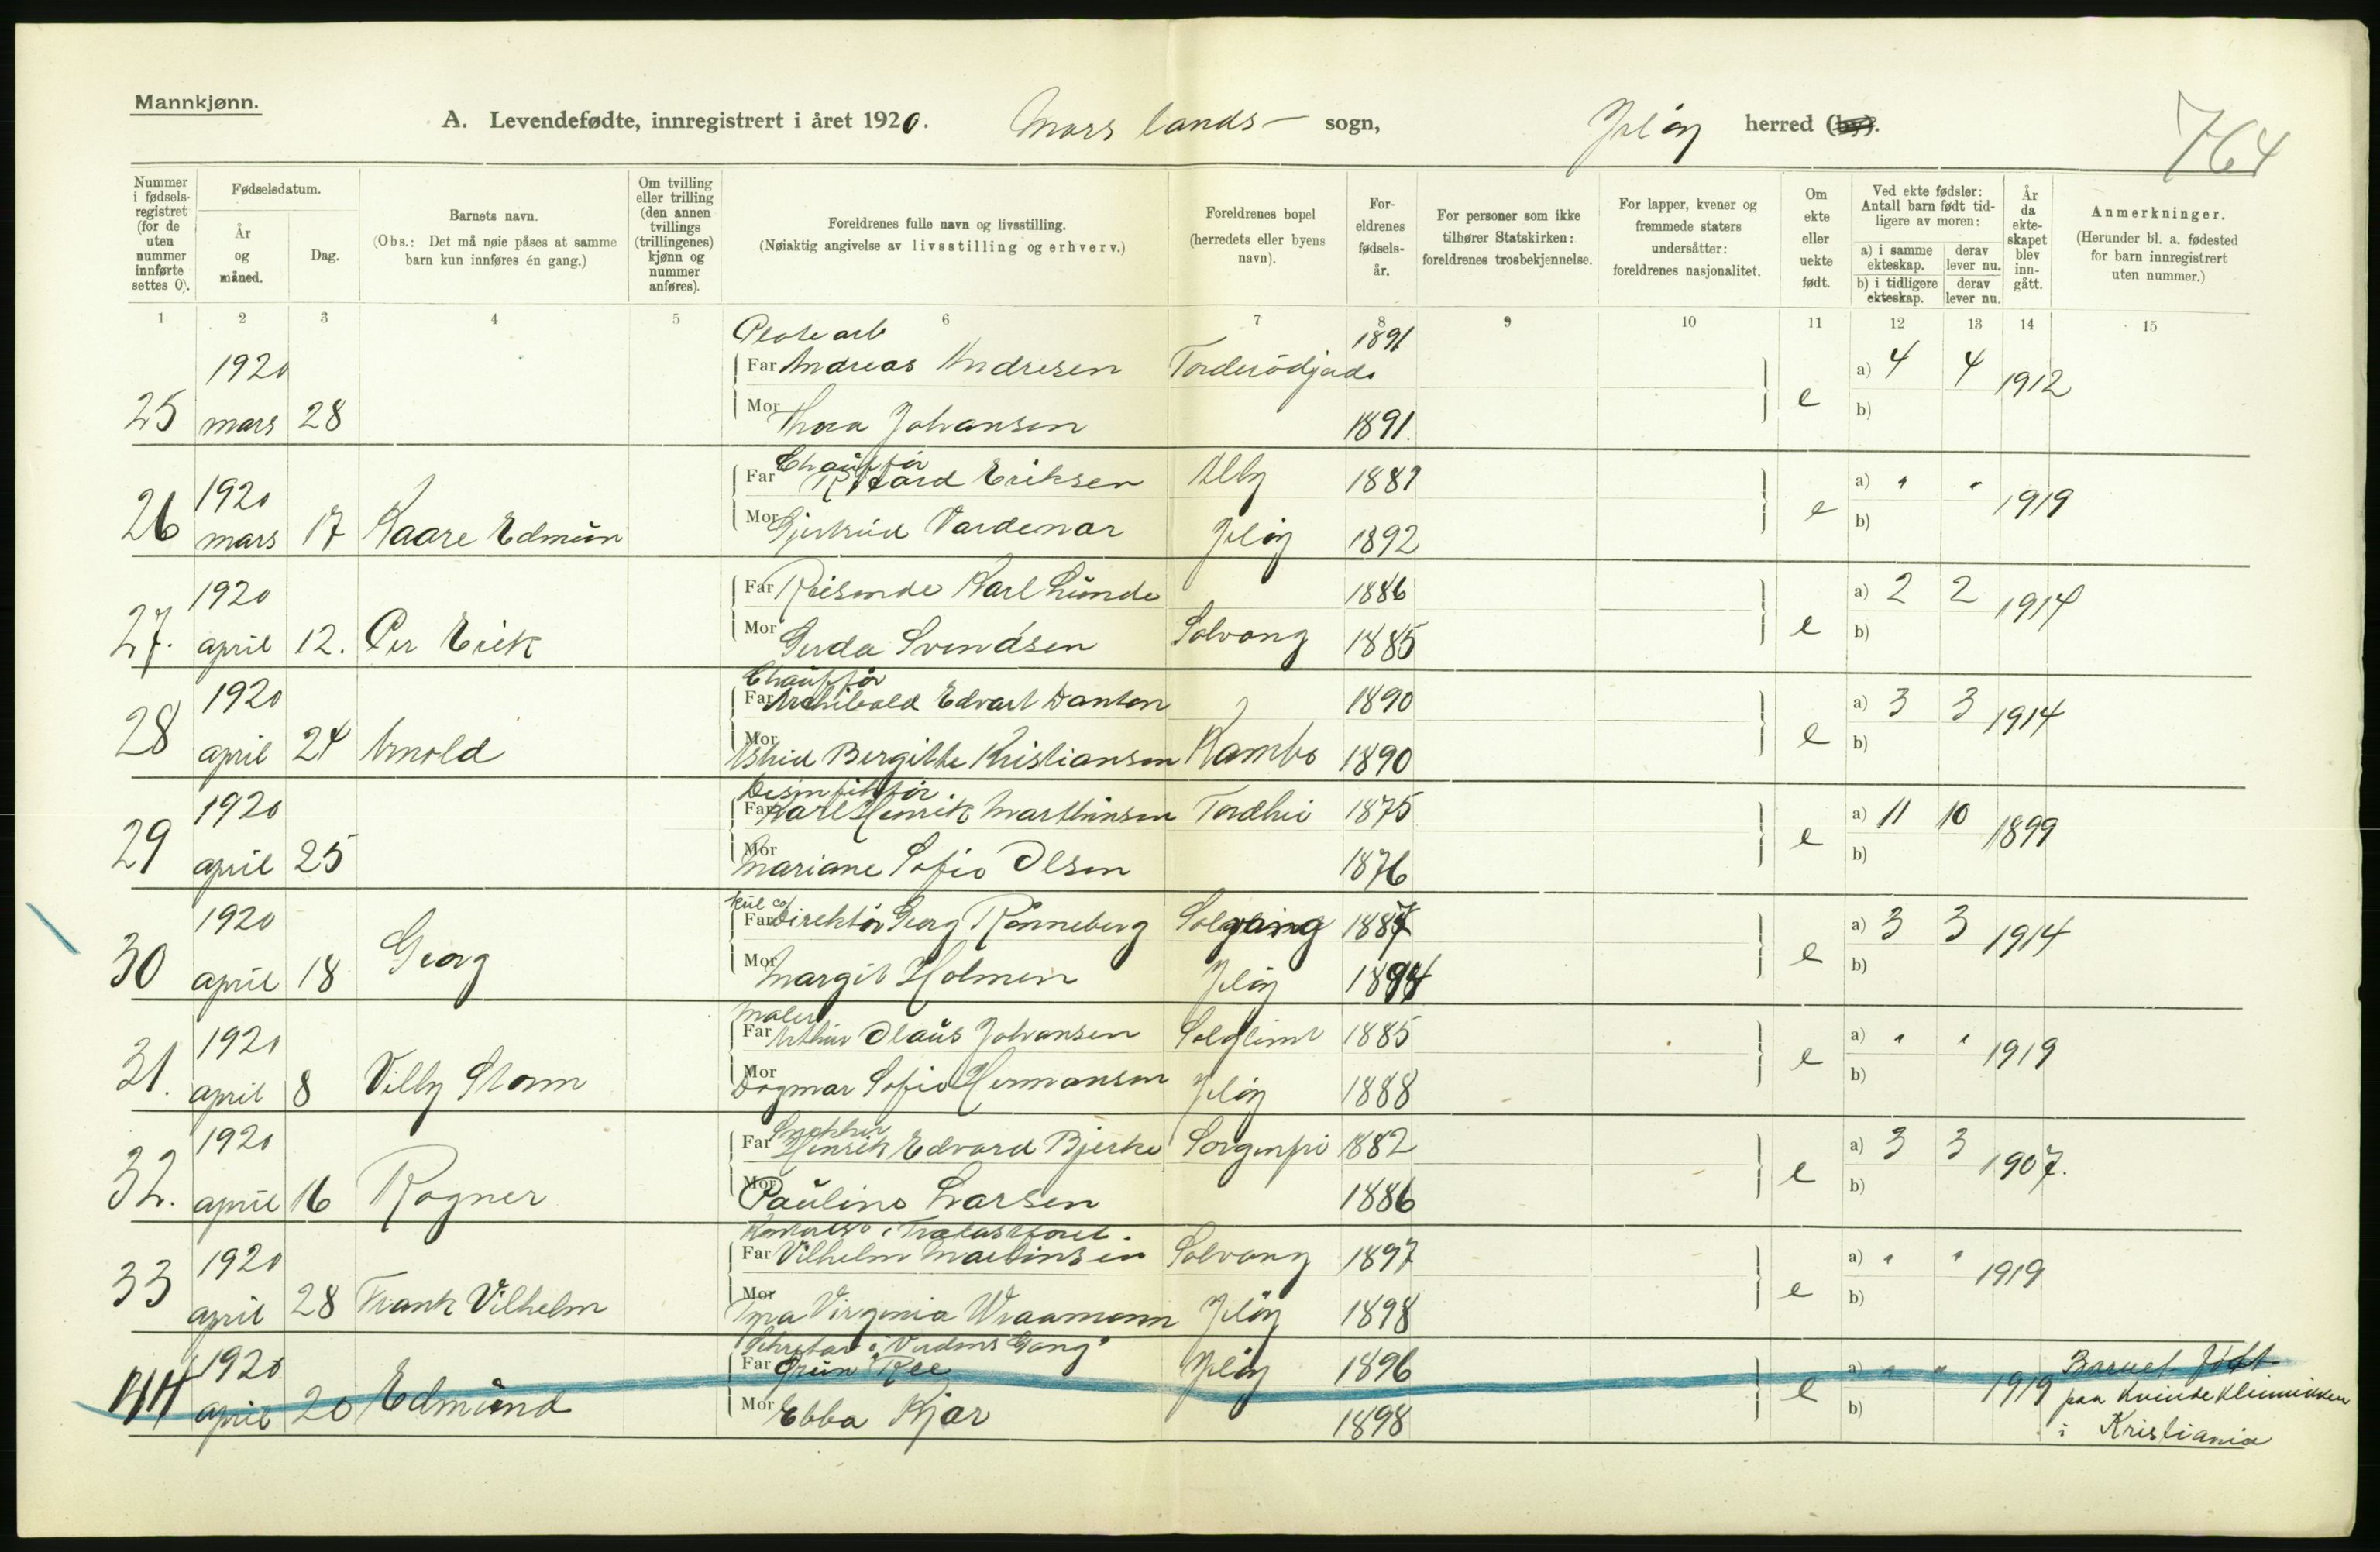 Mannkjønn.
A. Levendefødte, innregistrert i året 1920. Moss lands- sogn, Jeløy herred (by).
764
Nummer i fødsels-registret (for de uten nummer innførte settes 0).
Fødselsdatum.
År og måned.
Dag.
Barnets navn.
(Obs.: Det må nøie påses at samme barn kun innføres én gang.)
Om tvilling eller trilling (den annen tvillings (trillingenes) kjønn og nummer anføres).
Foreldrenes fulle navn og livsstilling.
(Nøiaktig angivelse av livsstilling og erhverv.)
Foreldrenes bopel (herredets eller byens navn).
For-eldrenes fødsels-år.
For personer som ikke tilhører Statskirken: foreldrenes trosbekjennelse.
For lapper, kvener og fremmede staters undersåtter: foreldrenes nasjonalitet.
Om ekte eller uekte født.
Ved ekte fødsler: Antall barn født tid-ligere av moren:
a) i samme ekteskap.
derav lever nu.
b) i tidligere ekteskap.
derav lever nu.
År da ekte-skapet blev inn-gått.
Anmerkninger.
(Herunder bl. a. fødested for barn innregistrert uten nummer.)
1 2 3 4 5 6 7 8 9 10 11 12 13 14 15
1920 1891
Far Andreas Andresen a) 4 4 1912
25 mars 28 Mor Thora Johansen 1891. e b)
Chauffør
1920 Far Rikard Eriksen Alby 1881 a) " " 1919
26 mars 17 Kaare Edmun Mor Gjertrud Vardenær Jeløy 1892 e b)
1920 Far Reisende Karl Lunde 1886 a) 2 2 1914
27. april 12. Per Erik Mor Gerda Svendsen Solvang 1885 e b)
Chauffør
1920 Far Archibald Edvart Danton 1890 a) 3 3 1914
28 april 24 Arnold Mor Astrid Bergitte Kristiansen Kambo 1890 e b)
Desinfektør.
1920 Far Karl Henrik Marthinsen 1875 a) 11 10 1899
29 april 25 Mor Mariane Sofie Olsen 1876 e b)
1920 Far Direktør Georg Rønneberg Solvang 1887 a) 3 3 1914
30 april 18 Georg Mor Margit Holmen Jeløy 1894 e b)
Maler
1920 Far Arthur Olaus Johansen Solglimt 1885 a) " " 1919
31. april 8 Villy Storm Mor Dagmar Sofie Hermansen Jeløy 1888 e b)
Snekker
1920 Far Henrik Edvard Bjerke Sorgenfri 1882 a) 3 3 1907.
32. april 16 Ragner Mor Pauline Larsen 1886 e b)
1920 Far Vilhelm Martinsen Solvang 1897 a) " " 1919
33 april 28 Frank Vilhelm Mor Virginia Jeløy 1898 e b)
Sekretær i "Verdens Gang"
1920 Far Grün Ree Jeløy 1896 a) " " 1919 Barnet født
april 20 Edmund Mor Ebba Kjær 1898 e b) paa Kvindeklinnikken
i Kristiania